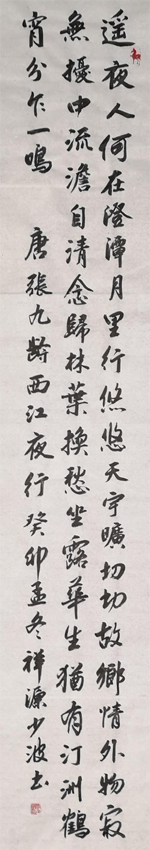 遥夜人何在澄潭月里行悠悠天宇曠切切故鄉情外物寂
無擾中流澹自清念歸林葉換愁坐露華生猶有汀洲鶴
宵分乍一鳴 唐張九齡西江夜行癸卯孟冬祥濂少波書